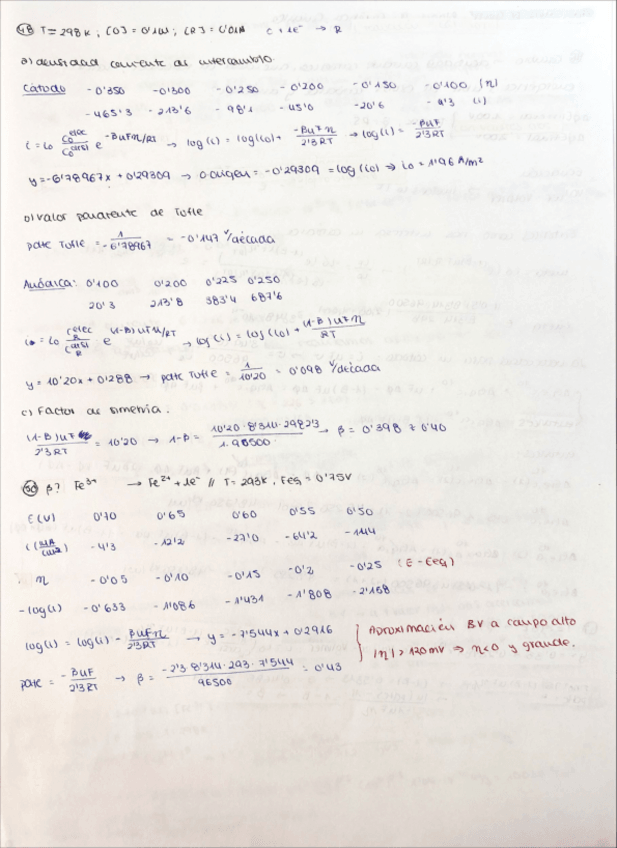 48 T = 298K, [O] = 0'10M, [R] = 0'01M O + 1e⁻ → R
a) densidad corriente de intercambio.
Cátodo -0'350 -0'300 -0'250 -0'200 -0'150 -0'100 (η)
-465'3 -213'6 -98'1 -45'0 -20'6 -9'3 (i)
y = -6'78967x + 0'29309 → O. origen = -0'29309 = log(io) ⇒ io = 1'96 A/m²
b) valor pendiente de Tafle
pdte Tafle = 1/-6'78967 = -0'147 V/década
Audaica: 0'100 0'200 0'225 0'250
20'3 213'8 383'4 687'6
y = 10'20x + 0'288 → pdte Tafle = 1/10'20 = 0'098 V/década
c) Factor de simetría.
(1-β)nF/2'3RT = 10'20 → 1-β = 10'20·8'314·298·2'3/1·96500 → β = 0'398 ≈ 0'40
50 β? Fe³⁺ → Fe²⁺ + 1e⁻ // T = 293K, Eeq = 0'75V
E(V) 0'70 0'65 0'60 0'55 0'50
i (mA/cm²) -4'3 -12'2 -27'0 -64'2 -144
η -0'05 -0'10 -0'15 -0'2 -0'25 (E - Eeq)
-log(i) -0'633 -1'086 -1'431 -1'808 -2'158
log(i) = log(i) - βnFη/2'3RT → y = -7'544x + 0'2916
Aproximación BV a campo alto
|η| > 120mV ⇒ η<0 y grande.
pdte = -βnF/2'3RT → β = -2'3·8'314·293·7'544/96500 = 0'43